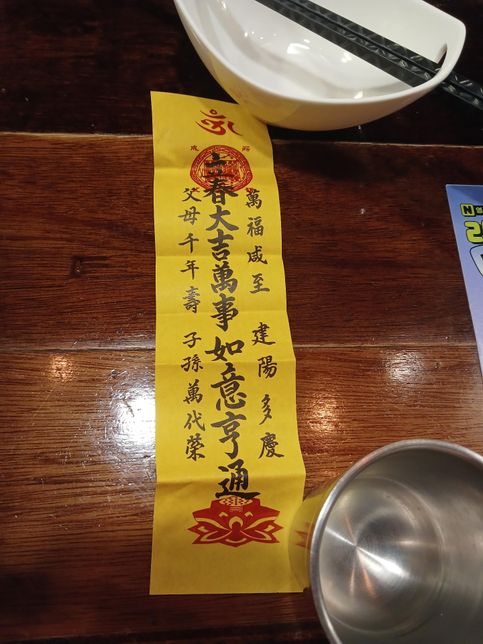 萬福咸至 建陽多慶
立春大吉萬事如意亨通
父母千年壽 子孫萬代榮
N